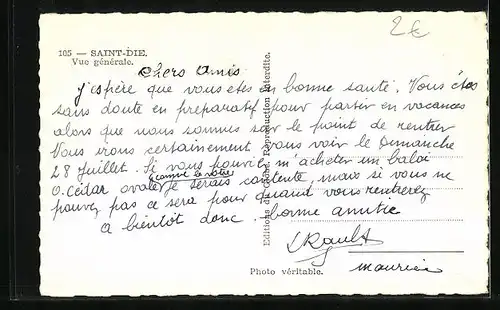 2€
105 — SAINT-DIE.
Vue générale.
Chers Amis
J'espère que vous etes en bonne santé. Vous êtes
sans doute en préparatif pour partir en vacances
alors que nous sommes sur le point de rentrer
Vous irons certainement vous voir le Dimanche
28 Juillet. Si vous pouviez m'acheter un balai
comme le votre
O.Cédar ovale je serais contente, mais si vous ne
pouvez pas ce sera pour quand vous rentrerez
a bientôt donc. bonne amitié
Maurice
Photo véritable.
Reproduction interdite.